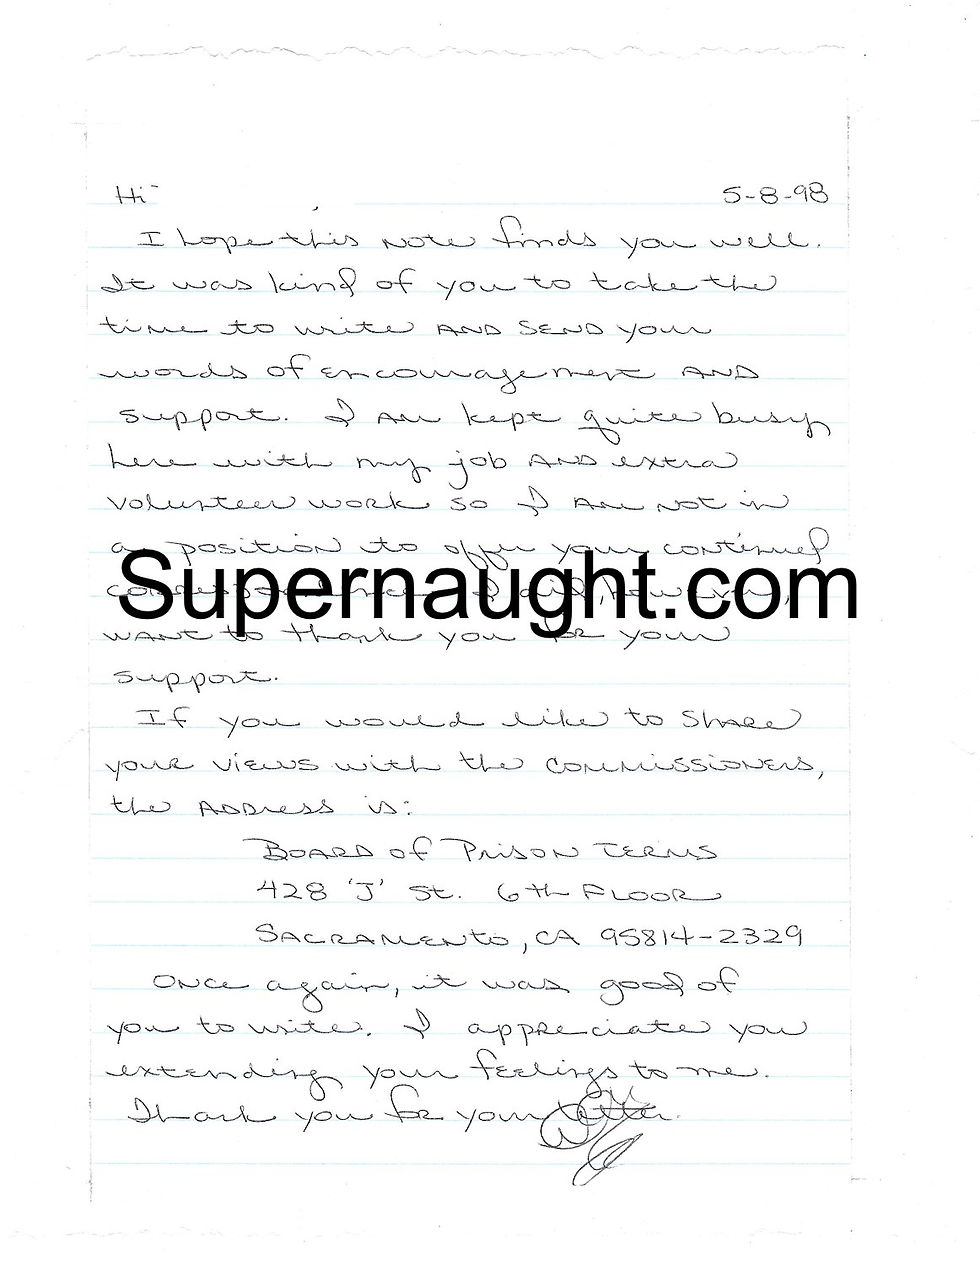 Hi- 5-8-98
I hope this note finds you well.
It was kind of you to take the
time to write AND SEND your
words of encouragement AND
support. I Am kept quite busy
here with my job AND extra
volunteer work so I Am not in
a position to offer your continued
Supernaught.com
want to thank you for your
support.
If you would like to share
your views with the commissioners,
the Address is:
BOARD of PRISON TERMS
428 'J' St. 6th FLOOR
SACRAMENTO, CA 95814-2329
Once again, it was good of
you to write. I appreciate you
extending your feelings to me.
Thank you for your letter.